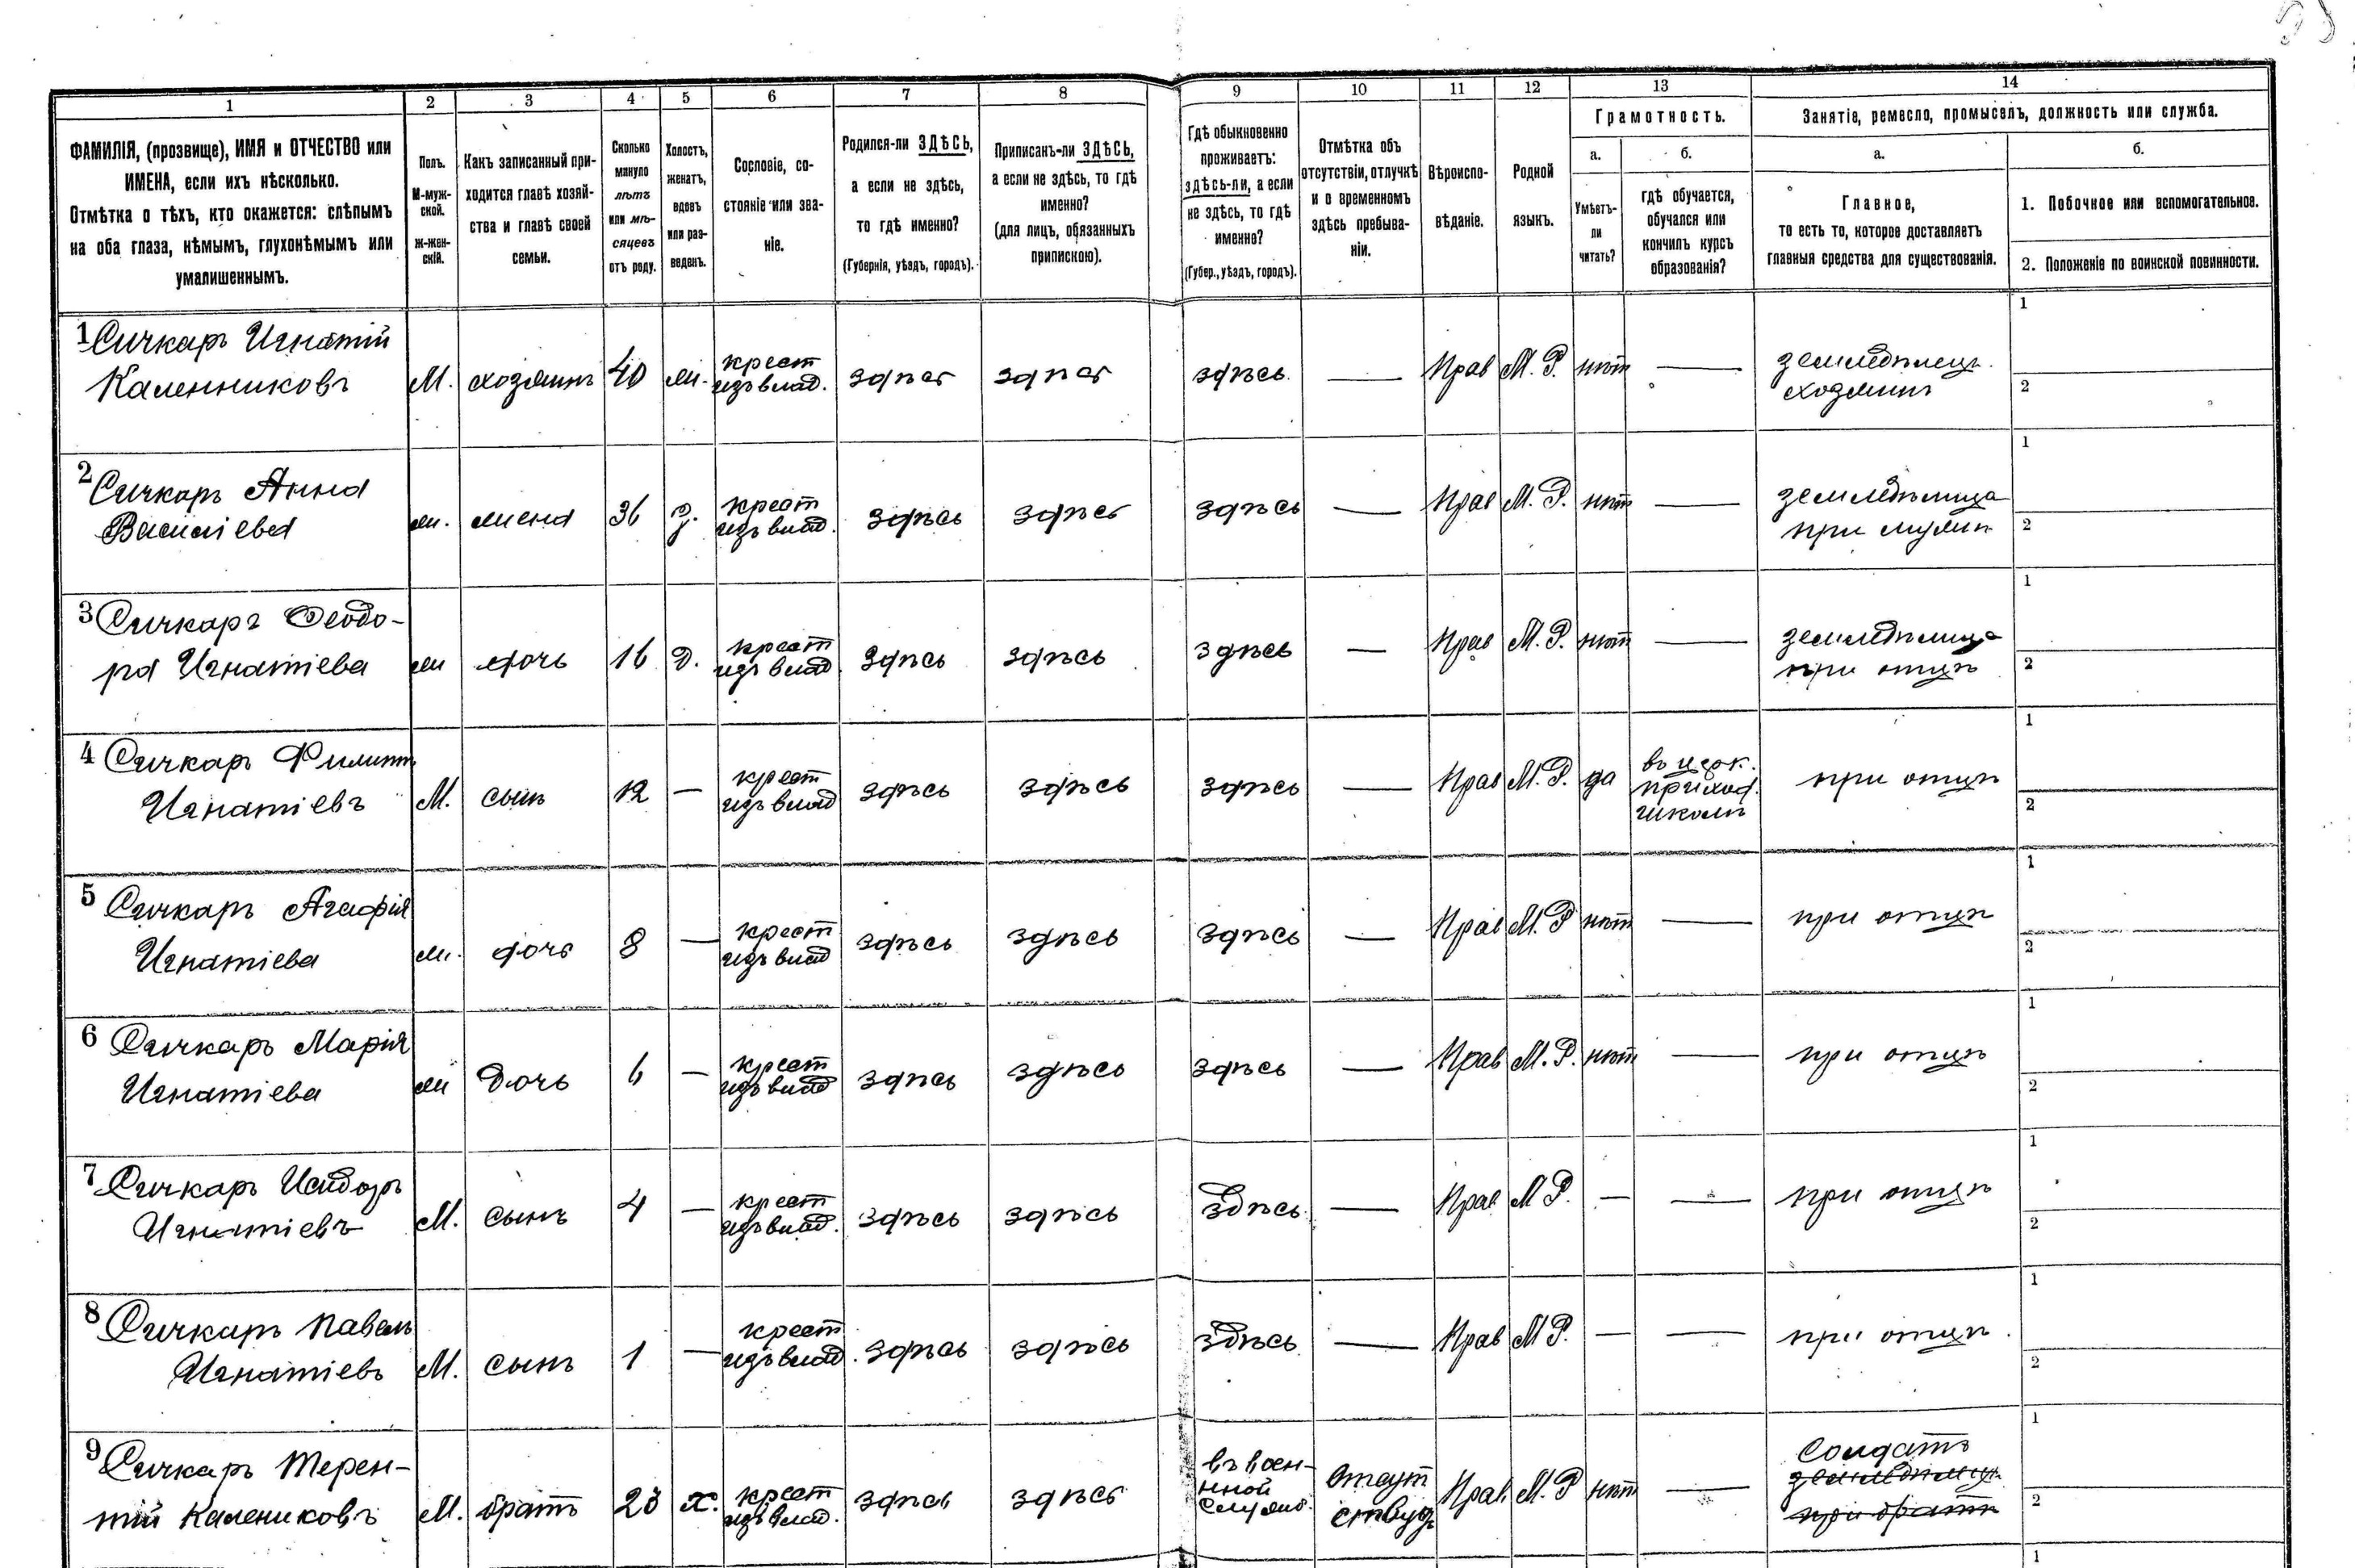 1
2
3
4
5
6
7
8
9
10
11
12
13
14
ФАМИЛІЯ, (прозвище), ИМЯ и ОТЧЕСТВО или
ИМЕНА, если ихъ нѣсколько.
Отмѣтка о тѣхъ, кто окажется: слѣпымъ
на оба глаза, нѣмымъ, глухонѣмымъ или
умалишеннымъ.
Полъ.
М-муж-
ской.
Ж-жен-
скій.
Какъ записанный при-
ходится главѣ хозяй-
ства и главѣ своей
семьи.
Сколько
минуло
лѣтъ
или мѣ-
сяцевъ
отъ роду.
Холостъ,
женатъ,
вдовъ
или раз-
веденъ.
Сословіе, со-
стояніе или зва-
ніе.
Родился-ли ЗДѢСЬ,
а если не здѣсь,
то гдѣ именно?
(Губернія, уѣздъ, городъ).
Приписанъ-ли ЗДѢСЬ,
а если не здѣсь, то гдѣ
именно?
(для лицъ, обязанныхъ
припискою).
Гдѣ обыкновенно
проживаетъ:
здѣсь-ли, а если
не здѣсь, то гдѣ
именно?
(Губер., уѣздъ, городъ).
Отмѣтка объ
отсутствіи, отлучкѣ
и о временномъ
здѣсь пребыва-
ніи.
Вѣроиспо-
вѣданіе.
Родной
языкъ.
Грамотность.
а.
Умѣетъ-
ли
читать?
б.
гдѣ обучается,
обучался или
кончилъ курсъ
образованія?
Занятіе, ремесло, промыселъ, должность или служба.
а.
Главное,
то есть то, которое доставляетъ
главныя средства для существованія.
б.
1. Побочное или вспомогательное.
2. Положеніе по воинской повинности.
1 Сичкаръ Игнатій
Каленниковъ
М.
хозяинъ
40
ж.
крест
изъ влад.
здѣсь
здѣсь
здѣсь
—
Прав
М. Р.
нѣт
—
земледѣлецъ
хозяинъ
1
2
2 Сичкаръ Анна
Василіева
ж.
жена
36
З.
крест
изъ влад.
здѣсь
здѣсь
здѣсь
—
Прав
М. Р.
нѣт
—
земледѣлица
при мужѣ
1
2
3 Сичкаръ Феодо-
ра Игнатіева
ж
дочь
16
д.
крест
изъ влад.
здѣсь
здѣсь
здѣсь
—
Прав
М. Р.
нѣт
—
земледѣлица
при отцѣ
1
2
4 Сичкаръ Филиппъ
Игнатіевъ
М.
сынъ
12
—
крест
изъ влад
здѣсь
здѣсь
здѣсь
—
Прав
М. Р.
да
въ церк.
приход.
школѣ
при отцѣ
1
2
5 Сичкаръ Агафія
Игнатіева
ж.
дочь
8
—
крест
изъ влад
здѣсь
здѣсь
здѣсь
—
Прав
М. Р
нѣт
—
при отцѣ
1
2
6 Сичкаръ Марія
Игнатіева
ж
дочь
6
—
крест
изъ влад
здѣсь
здѣсь
здѣсь
—
Прав
М. Р.
нѣт
—
при отцѣ
1
2
7 Сичкаръ Исидоръ
Игнатіевъ
М.
сынъ
4
—
крест
изъ влад.
здѣсь
здѣсь
здѣсь
—
Прав
М Р.
—
—
при отцѣ
1
2
8 Сичкаръ Павелъ
Игнатіевъ
М.
сынъ
1
—
крест
изъ влад.
здѣсь
здѣсь
здѣсь
—
Прав
М Р.
—
—
при отцѣ
1
2
9 Сичкаръ Терен-
тій Калениковъ
М.
братъ
23
х.
крест
изъ влад.
здѣсь
здѣсь
въ воен-
ной
службѣ
отсут
ствуе
Прав
М. Р
нѣт
—
солдатъ
земледѣлецъ
при братѣ
1
2
1